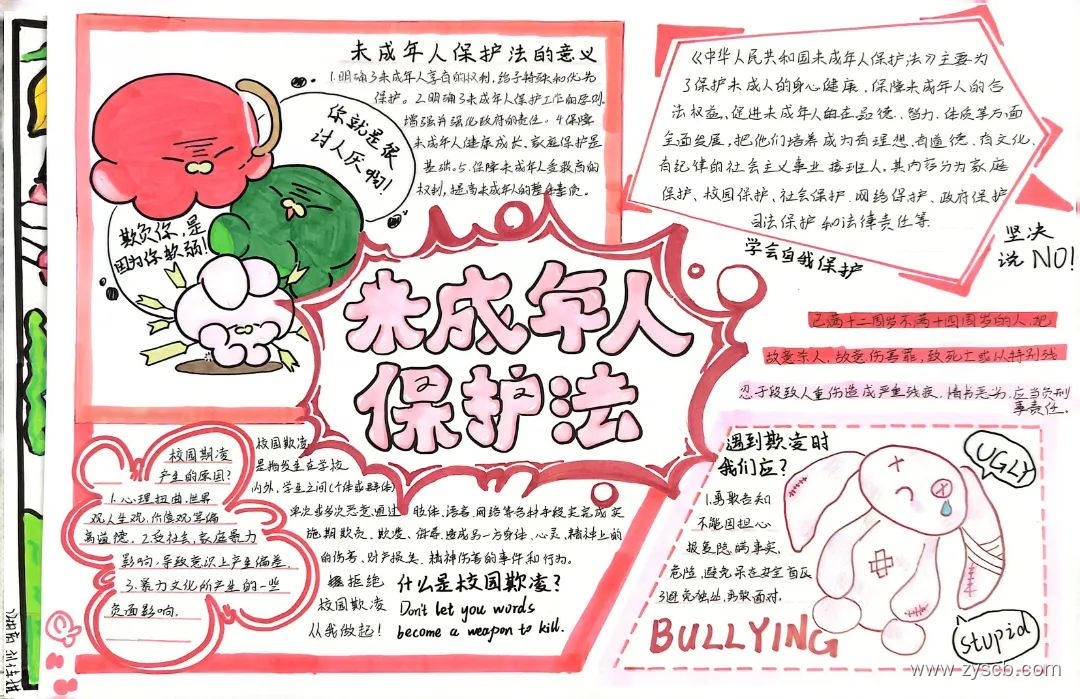 未成年人保护法的意义
1.明确了未成年人享有的权利,给予特殊和优先
保护。2.明确了未成年人保护工作的原则
增强并强化政府的责任。4保障
未成年人健康成长,家庭保护是
基础。5.保障未成年人受教育的
权利,提高未成年人的整身素质。
你就是很
讨人厌啊!
欺负你,是
因为你软弱!
未成年人
保护法
《中华人民共和国未成年人保护法》主要为
了保护未成人的身心健康,保障未成年人的合
法权益,促进未成年人的在品德、智力、体质等方面
全面发展,把他们培养成为有理想、有道德、有文化、
有纪律的社会主义事业接班人,其内容分为家庭
保护、校园保护、社会保护、网络保护、政府保护
司法保护和法律责任等
学会自我保护
坚决
说 NO!
已满十二周岁不满十四周岁的人,犯
故意杀人,故意伤害罪,致死亡或以特别残
忍手段致人重伤造成严重残疾,情节恶劣,应当负刑
事责任。
校园欺凌
产生的原因?
1.心理扭曲,世界
观人生观,价值观等偏
离道德。2.受社会、家庭暴力
影响,导致意识上产生偏差。
3.暴力文化所产生的一些
负面影响。
校园欺凌
是指发生在学校
内外,学生之间(个体或群体)
单次或多次恶意通过 肢体、语言、网络等各种手段实完成实
施期欺负、欺凌、侮辱、造成另一方身体、心灵、精神上的
的伤害、财产损失、精神伤害的事件和行为。
拒绝
校园欺凌
从我做起!
什么是校园欺凌?
Don't let you words
become a weapon to kill.
遇到欺凌时
我们应?
1.勇敢告知
不能因担心
报复隐瞒事实,
3避免独处,勇敢面对.
BULLYING
UGLY
stupid
www.zyscb.com